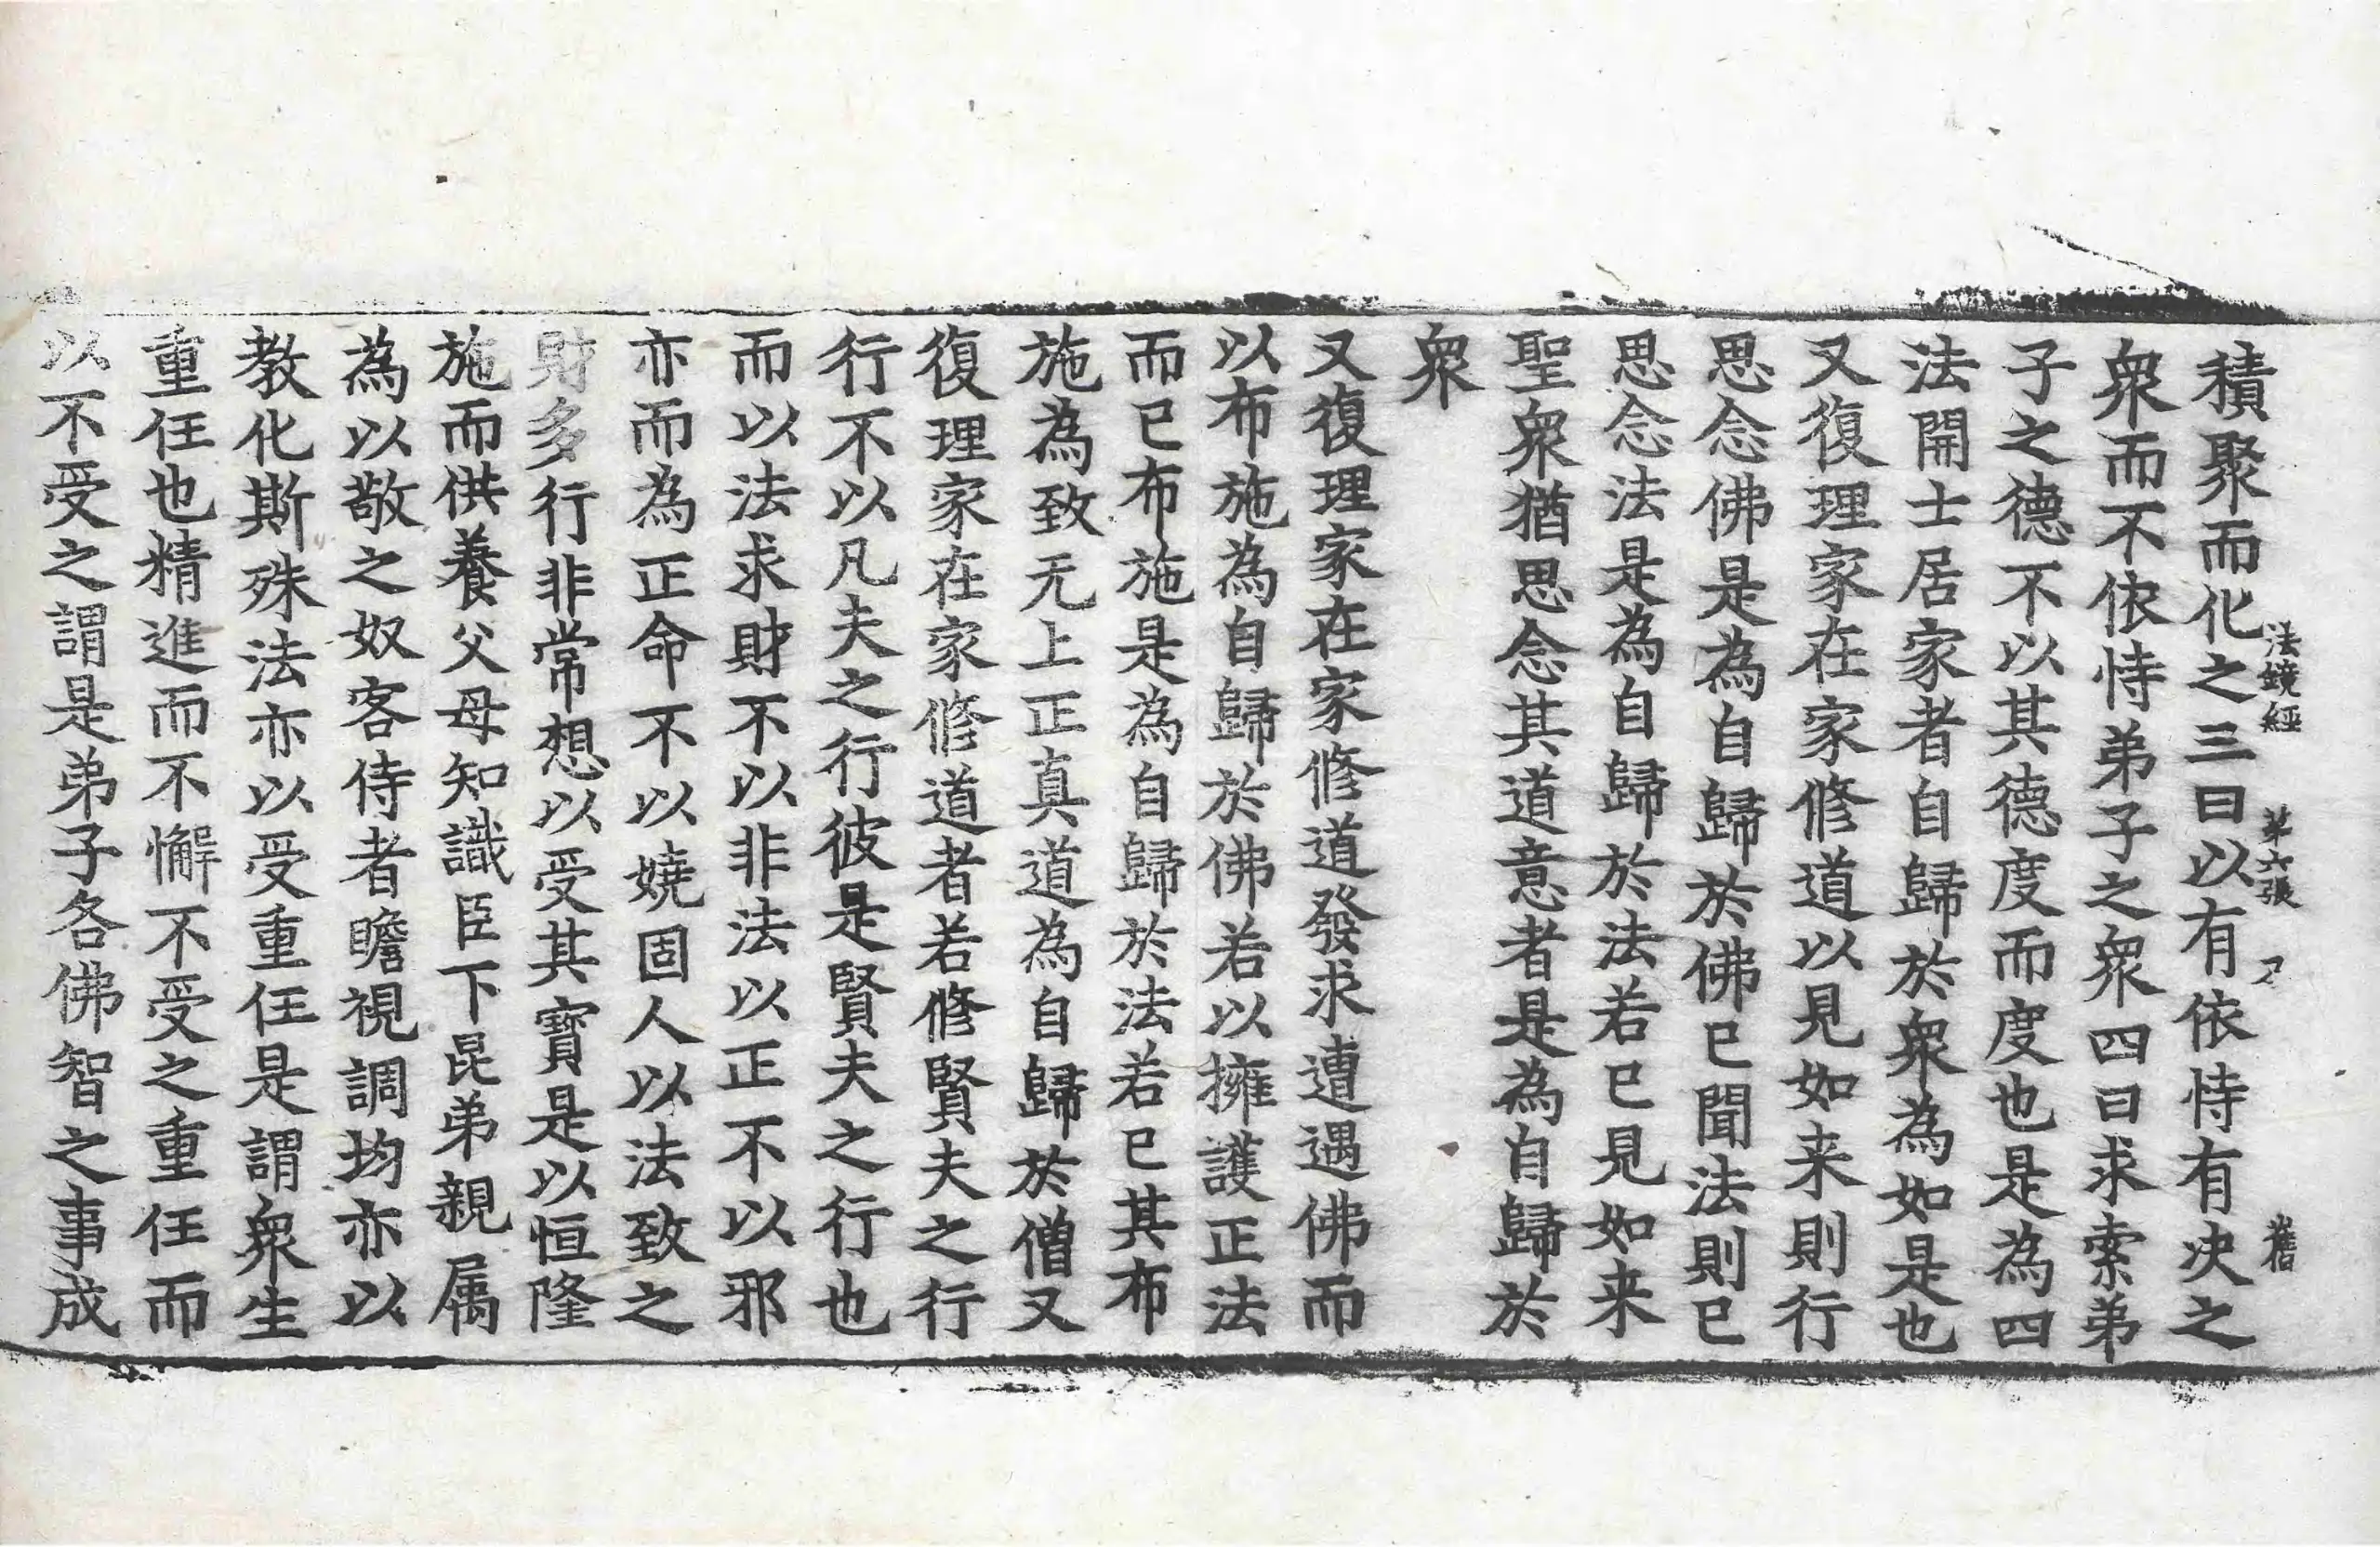 法鏡經 第六張
積聚而化之三曰以有依恃有决之
衆而不依恃弟子之衆四曰求索弟
子之德不以其德度而度也是為四
法開士居家者自歸於衆為如是也
又復理家在家修道以見如来則行
思念佛是為自歸於佛已聞法則已
思念法是為自歸於法若已見如来
聖衆猶思念其道意者是為自歸於
衆
又復理家在家修道發求遭遇佛而
以布施為自歸於佛若以擁護正法
而已布施是為自歸於法若已其布
施為致无上正真道為自歸於僧又
復理家在家修道者若修賢夫之行
行不以凡夫之行彼是賢夫之行也
而以法求財不以非法以正不以邪
亦而為正命不以嬈固人以法致之
財多行非常想以受其寶是以恒隆
施而供養父母知識臣下昆弟親属
為以敬之奴客侍者瞻視調均亦以
教化斯殊法亦以受重任是謂衆生
重任也精進而不懈不受之重任而
以不受之謂是弟子各佛智之事成